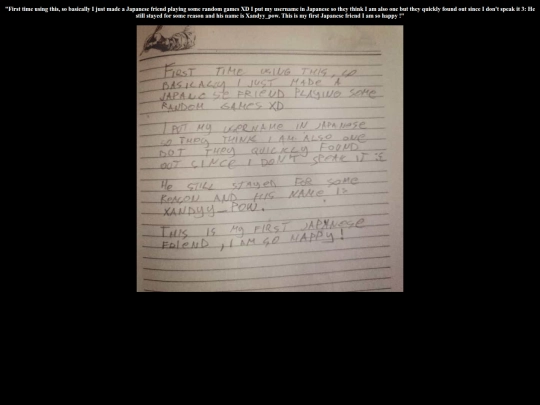 "First time using this, so basically I just made a Japanese friend playing some random games XD I put my username in Japanese so they think I am also one but they quickly found out since I don't speak it 3: He
still stayed for some reason and his name is Xandyy_pow. This is my first Japanese friend I am so happy !"
FIRST TIME USING THIS, SO
BASICALLY I JUST MADE A
JAPANESE FRIEND PLAYING SOME
RANDOM GAMES XD
I PUT MY USERNAME IN JAPANESE
SO THEY THINK I AM ALSO ONE
BUT THEY QUICKLY FOUND
OUT SINCE I DON'T SPEAK IT 3:
HE STILL STAYED FOR SOME
REASON AND HIS NAME IS
XANDYY_POW.
THIS IS MY FIRST JAPANESE
FRIEND, I AM SO HAPPY!